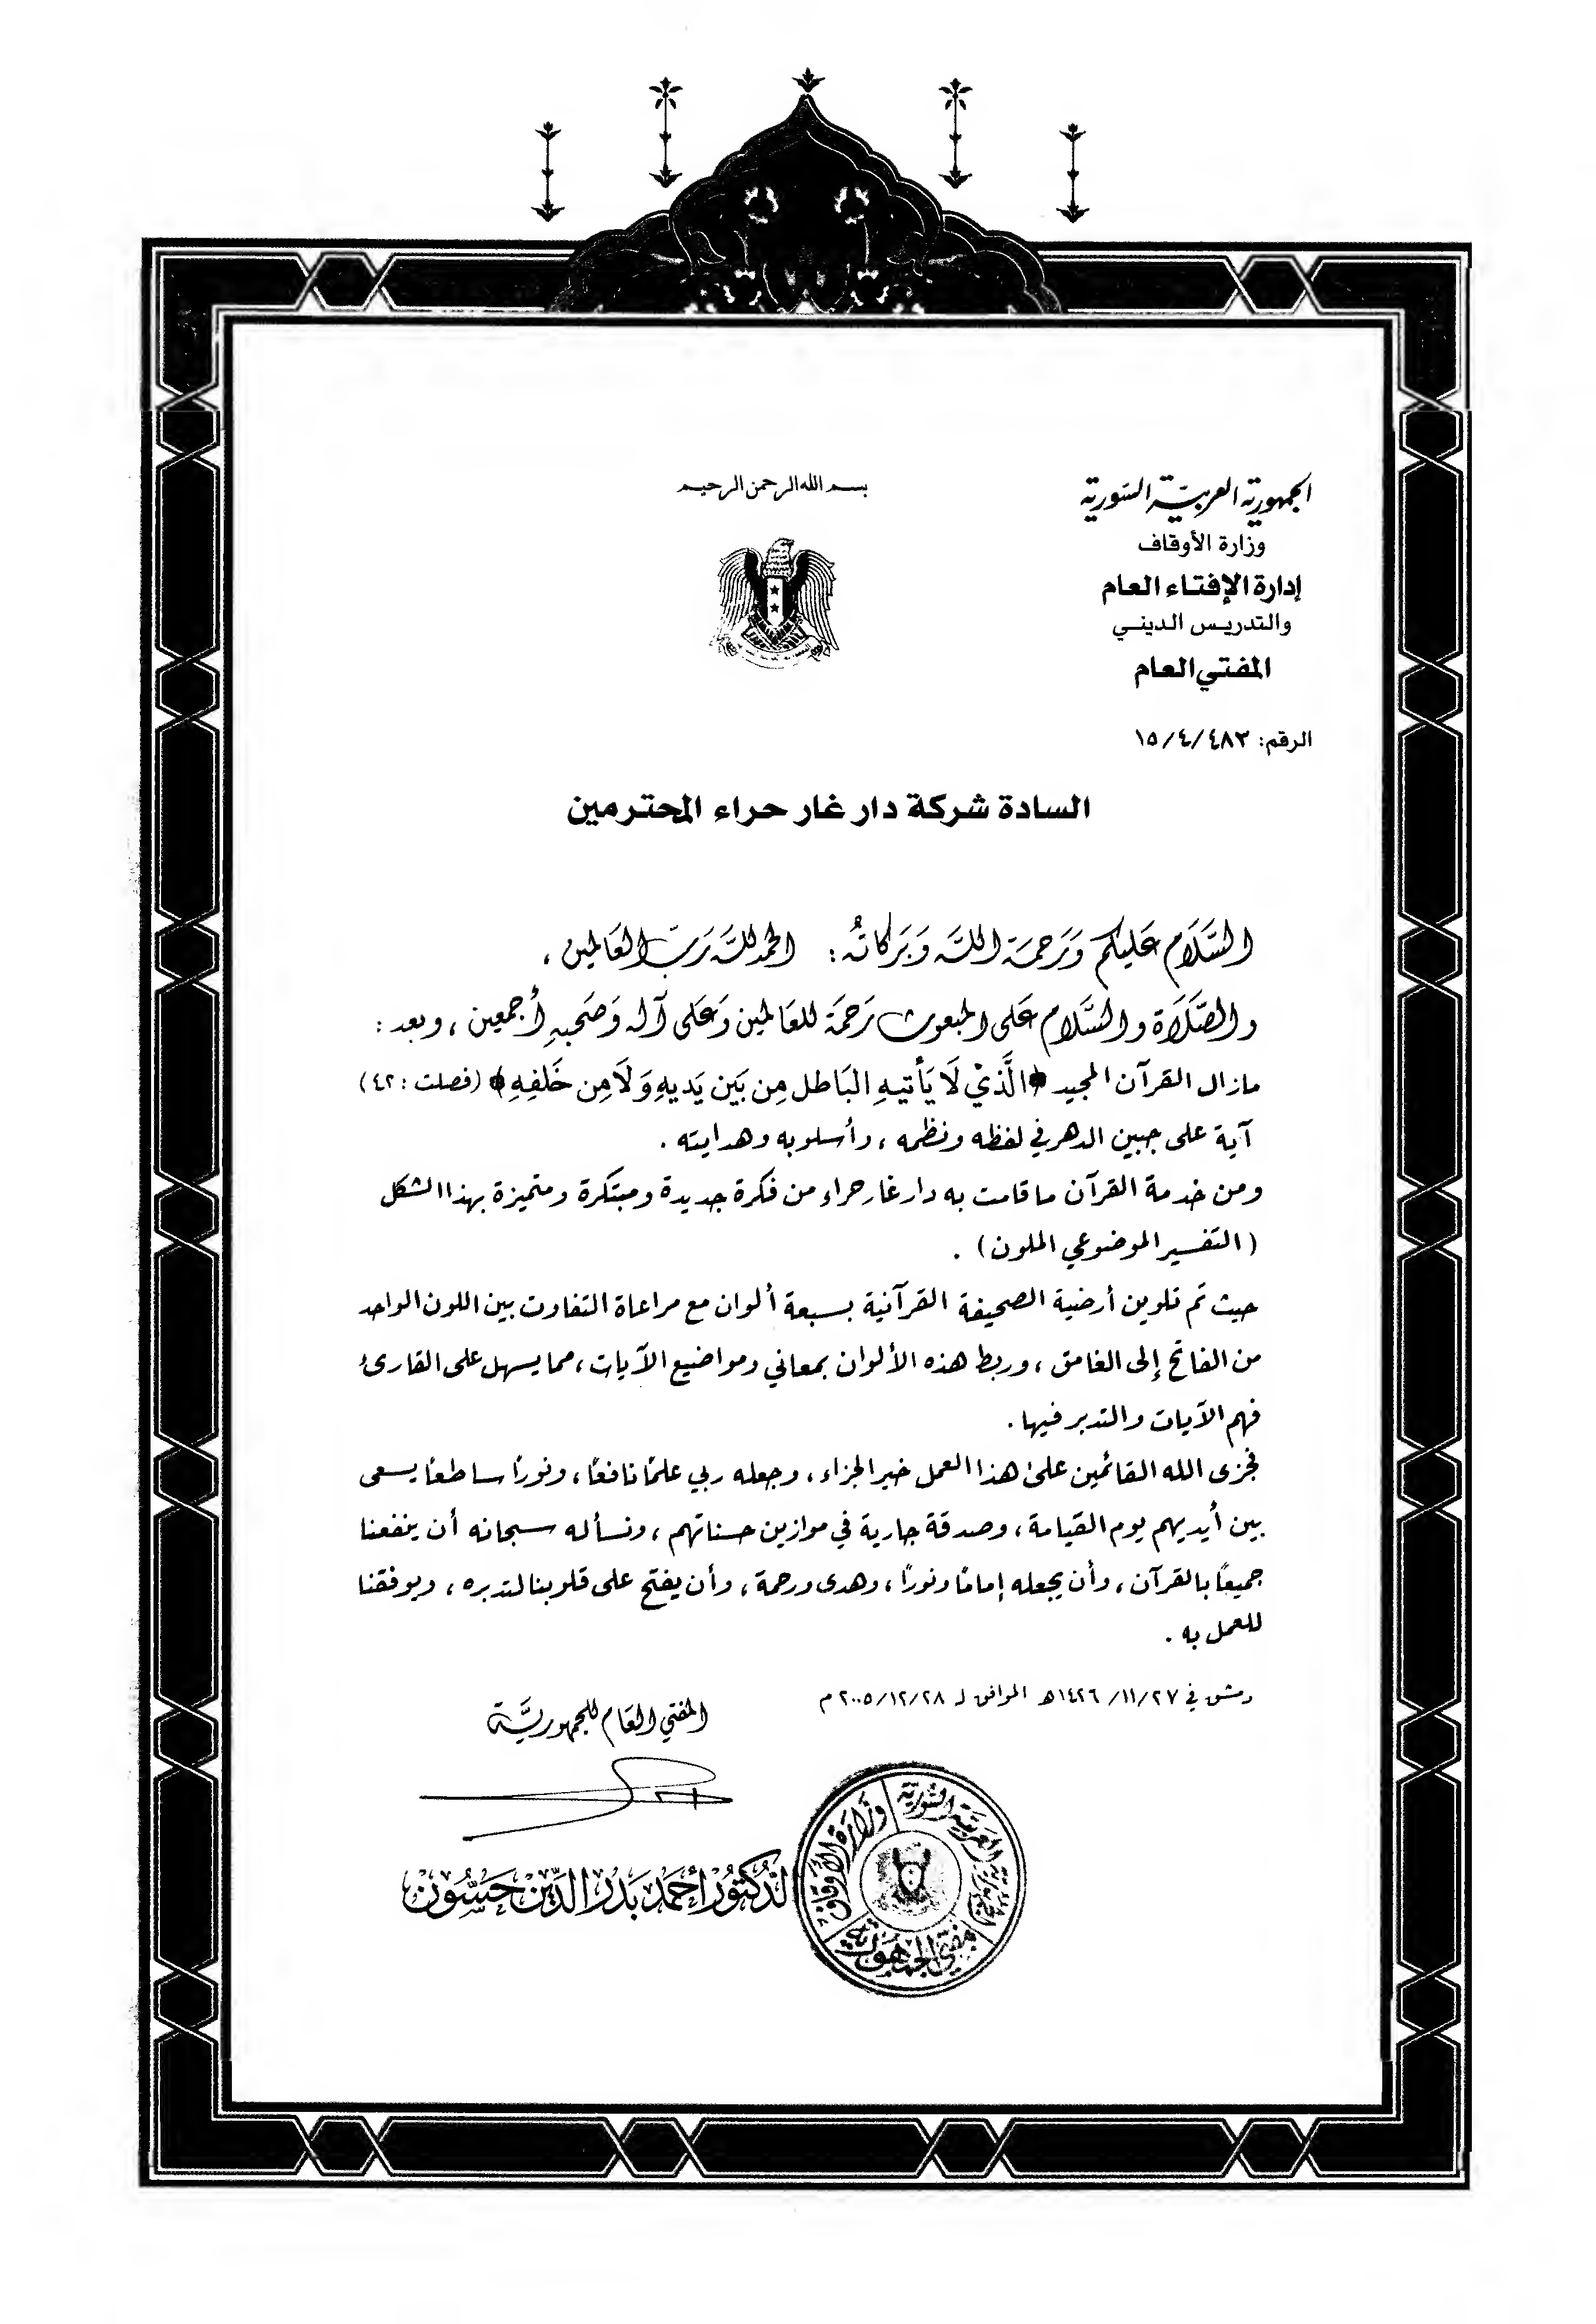 بسم الله الرحمن الرحيم
الجمهورية العربية السورية
وزارة الأوقاف
إدارة الإفتاء العام
والتدريس الديني
المفتي العام
الرقم: ٤٨٣ /٤ /١٥
السادة شركة دار غار حراء المحترمين
السَّلَام عَليكم وَرَحمَة اللَّه وَبَركاتُه : الحمد للَّه رَبّ العَالمين ،
والصَّلَاة والسَّلام عَلى المبعوث رَحمَة للعَالمين وَعَلى آله وَصَحبهِ أجمعين ، وبعد :
مازال القرآن المجيد ﴿الَّذيْ لَا يَأتيهِ البَاطل مِن بَين يَديهِ وَلَا مِن خَلفِهِ﴾ (فصلت : ٤٢)
آية على جبين الدهر في لفظه ونظمه ، وأسلوبه وهدايته .
ومن خدمة القرآن ما قامت به دار غار حراء من فكرة جديدة ومبتكرة ومتميزة بهذا الشكل
(التفسير الموضوعي الملون) .
حيث تم تلوين أرضية الصحيفة القرآنية بسبعة ألوان مع مراعاة التفاوت بين اللون الواحد
من الفاتح إلى الغامق ، وربط هذه الألوان بمعاني ومواضيع الآيات ، مما يسهل على القارئ
فهم الآيات والتدبر فيها .
فجزى الله القائمين على هذا العمل خير الجزاء ، وجعله ربي علمًا نافعًا ، ونورًا ساطعًا يسعى
بين أيديهم يوم القيامة ، وصدقة جارية في موازين حسناتهم ، ونسأله سبحانه أن ينفعنا
جميعًا بالقرآن ، وأن يجعله إمامًا ونورًا ، وهدى ورحمة ، وأن يفتح على قلوبنا لتدبره ، ويوفقنا
للعمل به .
دمشق في ٢٧/ ١١/ ١٤٢٦هـ الموافق لـ ٢٨ /١٢/ ٢٠٠٥ م
المفتي العَام للجمهوريَّة
الدُّكتُور أحمَد بَدر الدِّين حَسُّون
الجمهورية العربية السورية
وزارة الأوقاف
مفتي الجمهورية